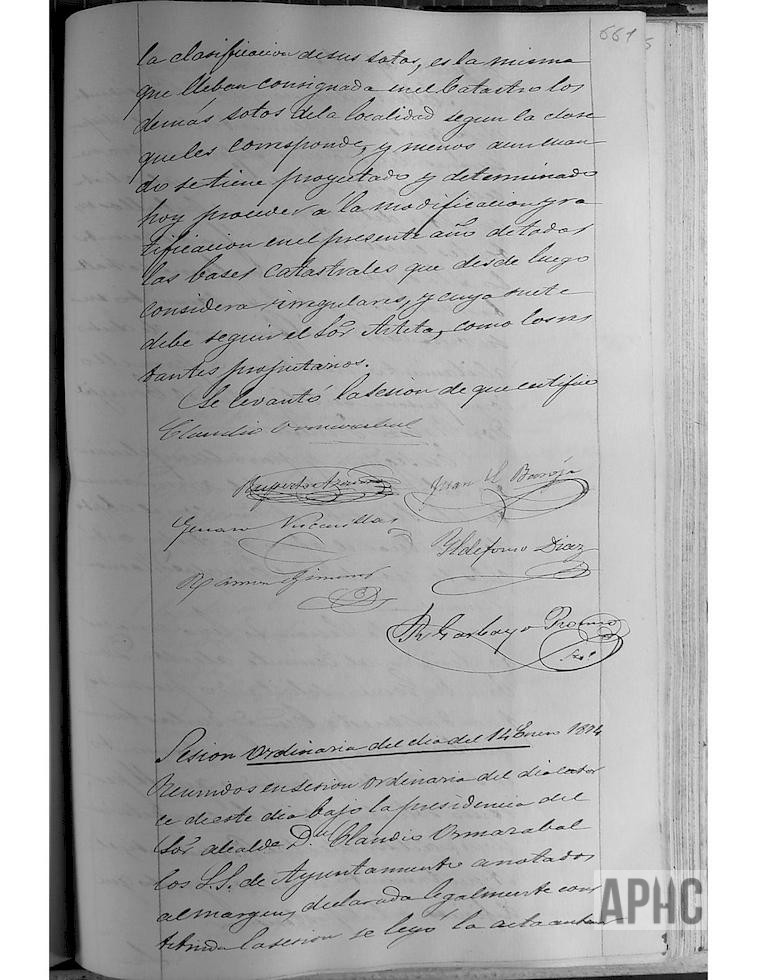 661
la clasificacion de sus sotos, es la misma
que lleban consignada en el Catastro los
demás sotos de la localidad segun la clase
que les corresponde, y menos aun cuan
do se tiene proyectado y determinado
hoy proceder a la modificacion y ra
tificacion en el presente año de todas
las bases Catastrales que desde luego
considera irregulares, y cuya suerte
debe seguir el Sor Arteta, como los res
tantes propietarios.
Se levantó la sesion de que certifico
Claudio Ormazabal
Juan M Baroja
Genaro
Yldefonso Diaz
Ramon Gimeno
Garbayo
Srio
Sesion ordinaria del dia del 14 Enero 1894
Reunidos en sesion ordinaria del dia cator
ce de este dia bajo la presidencia del
Sor alcalde Dn Claudio Ormazabal
los S.S. de Ayuntamiento anotados
al margen, declarada legalmente cons
tituida la sesion se leyó la acta anterior
APHC